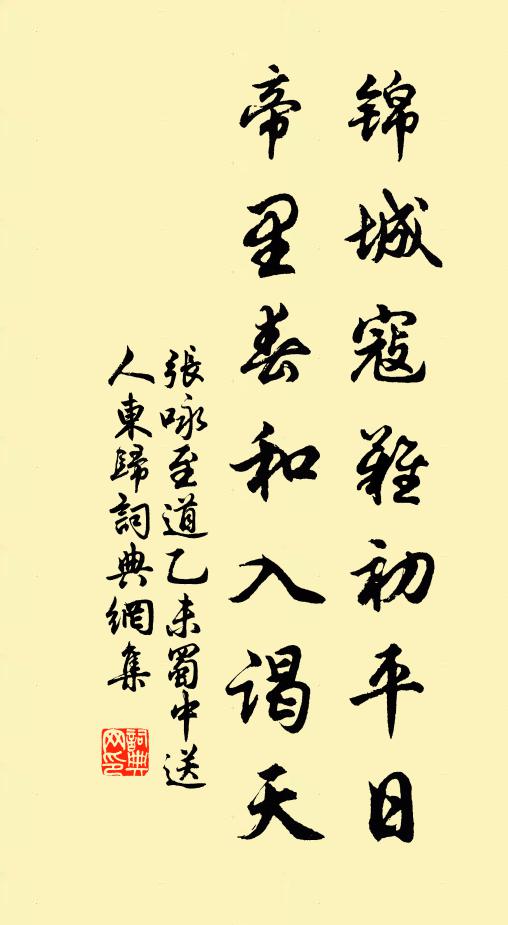 锦城寇難初平日
帝里春和入謁天
張咏至道乙未蜀中送
人東歸詞典網集
詞典
网印